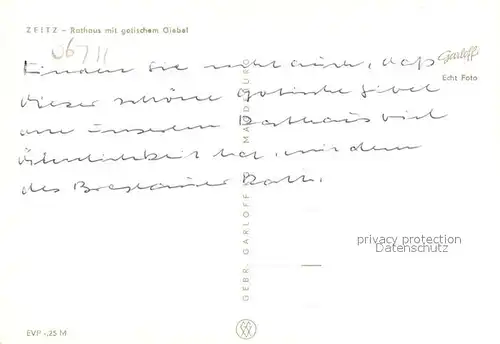 ZEITZ – Rathaus mit gotischem Giebel
06711
Garloff
Echt Foto
Finden Sie nicht auch, daß
dieser schöne Gotische Gibel
an unserem Rathaus viel
Ähnlichkeit hat, mit dem
des Breslauer Rath.
GEBR. GARLOFF MAGDEBURG
privacy protection
Datenschutz
EVP -,25 M